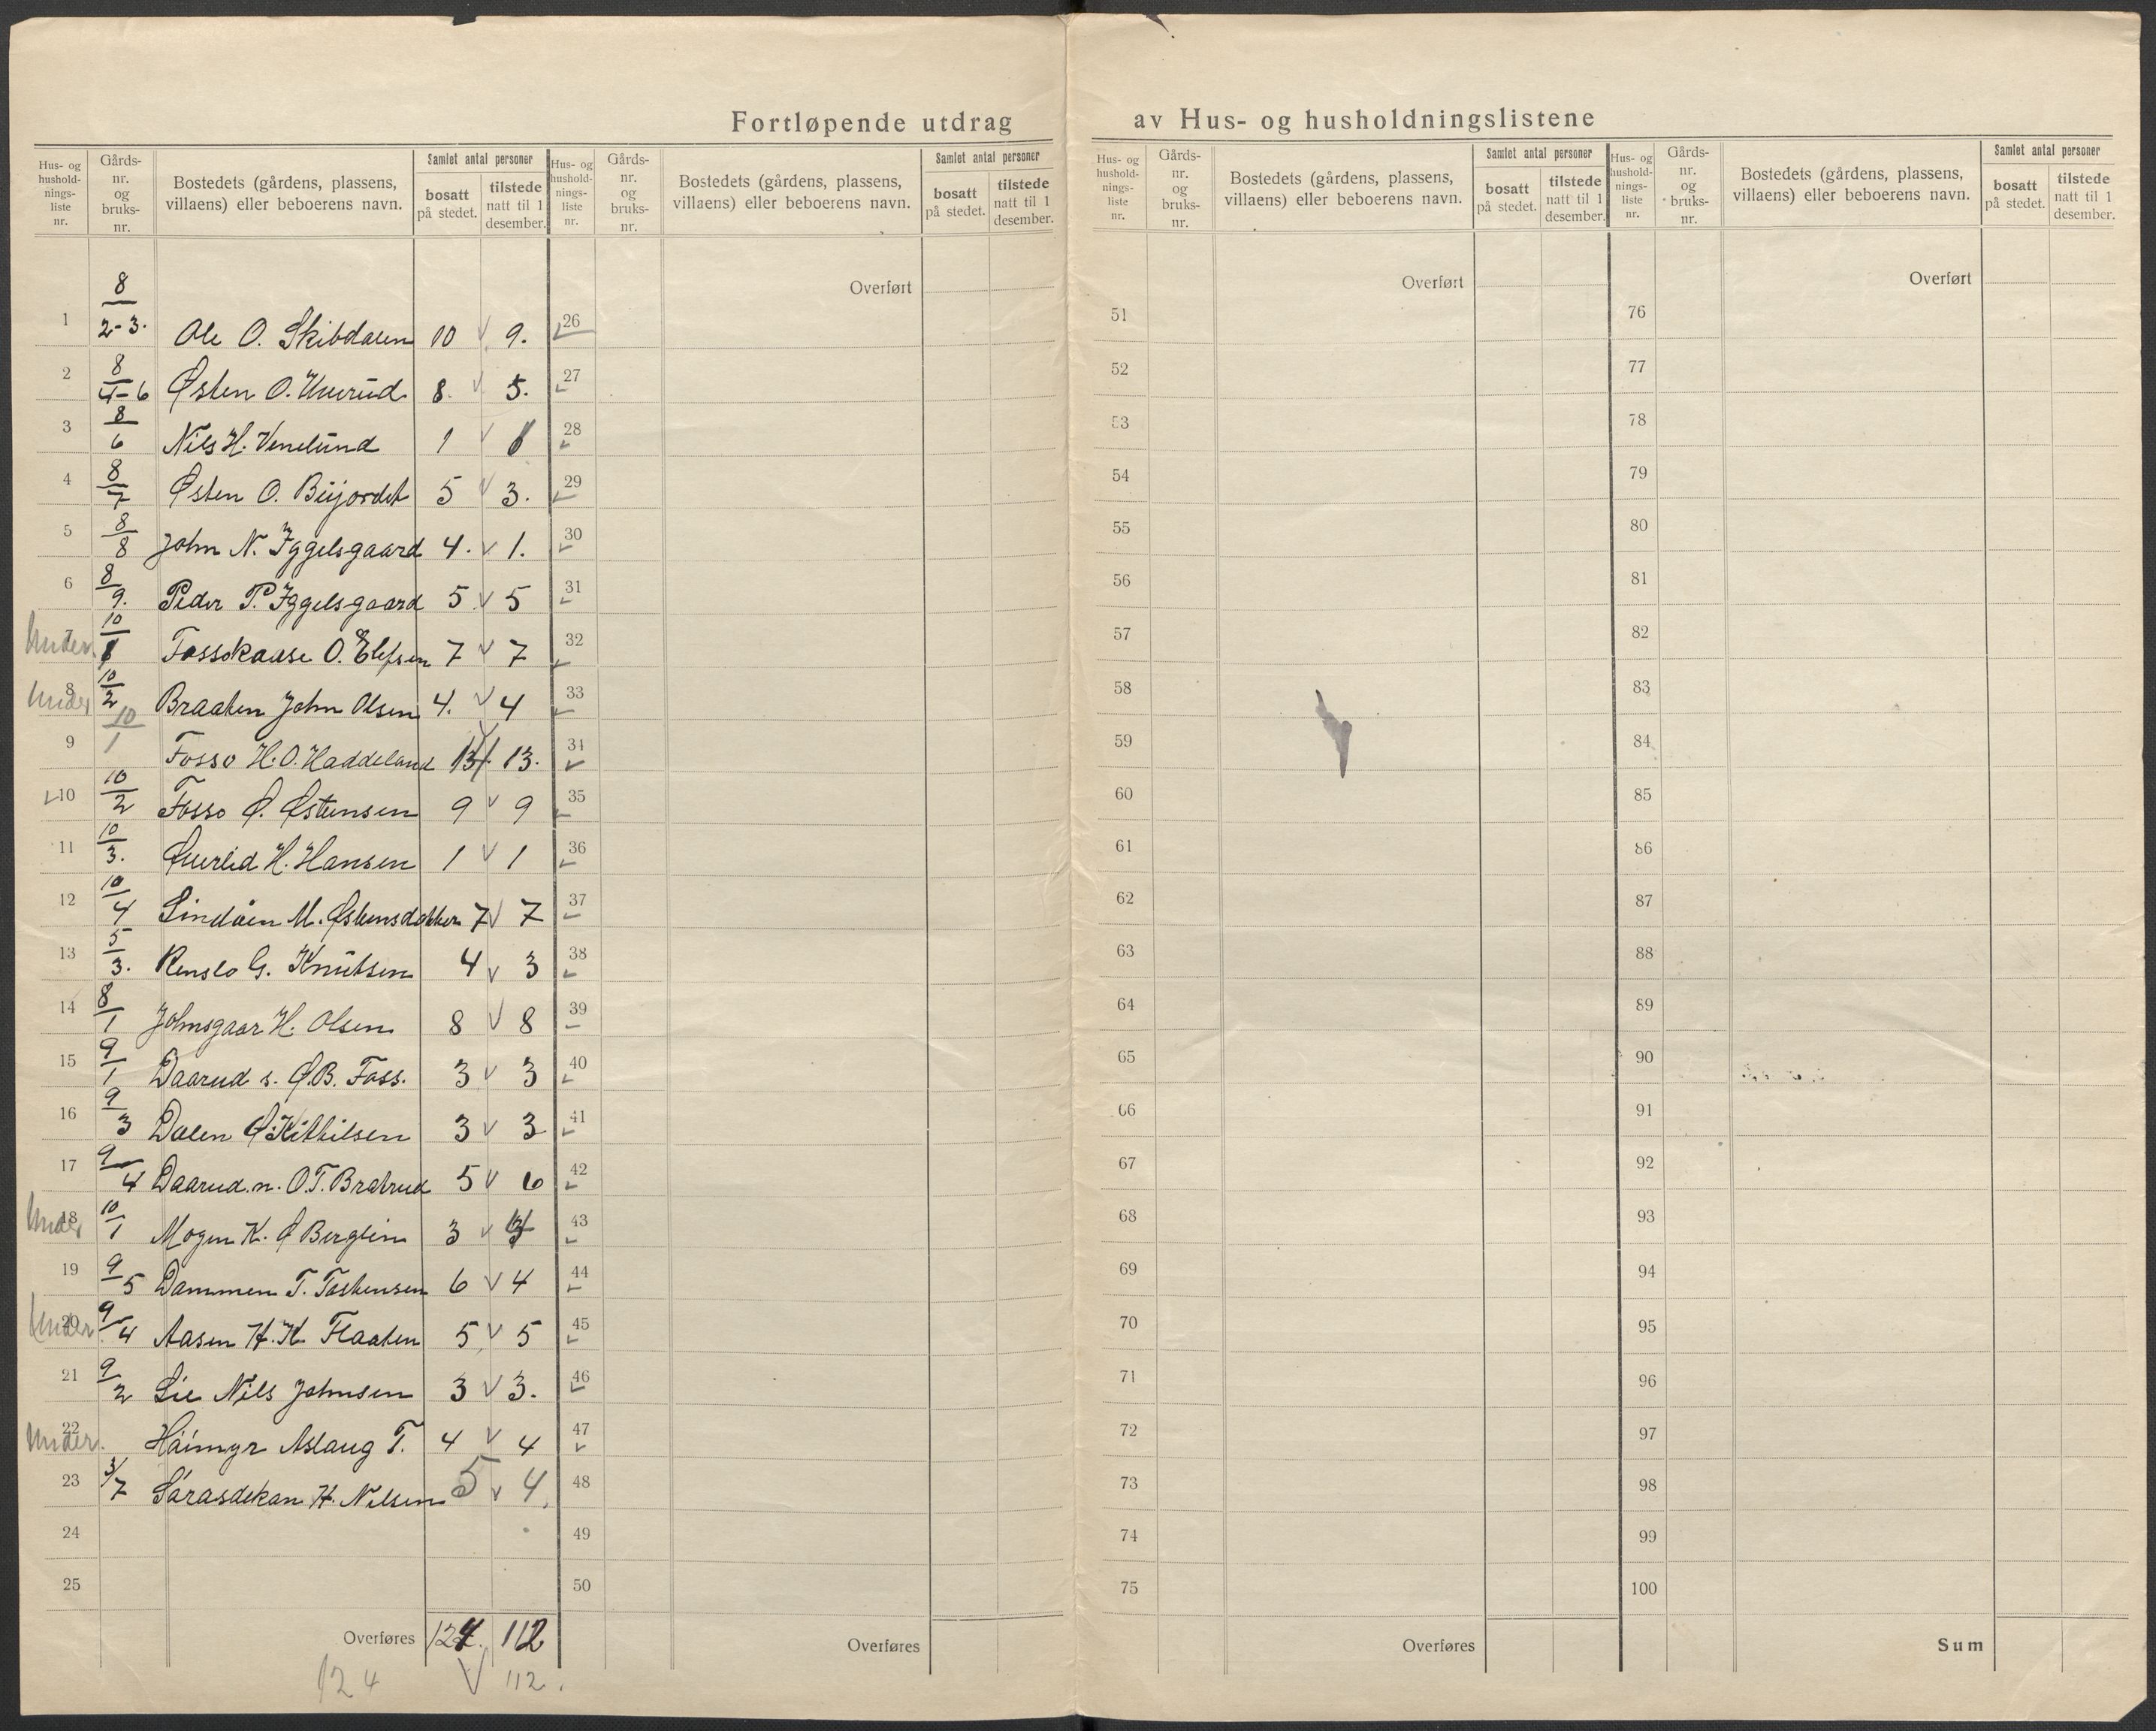 Fortløpende utdrag av Hus- og husholdningslistene
Hus- og hushold-nings-liste nr. Gårds-nr. og bruks-nr. Bostedets (gårdens, plassens, villaens) eller beboerens navn. Samlet antal personer bosatt på stedet. tilstede natt til 1 desember.
Hus- og hushold-nings-liste nr. Gårds-nr. og bruks-nr. Bostedets (gårdens, plassens, villaens) eller beboerens navn. Samlet antal personer bosatt på stedet. tilstede natt til 1 desember.
Hus- og hushold-nings-liste nr. Gårds-nr. og bruks-nr. Bostedets (gårdens, plassens, villaens) eller beboerens navn. Samlet antal personer bosatt på stedet. tilstede natt til 1 desember.
Hus- og hushold-nings-liste nr. Gårds-nr. og bruks-nr. Bostedets (gårdens, plassens, villaens) eller beboerens navn. Samlet antal personer bosatt på stedet. tilstede natt til 1 desember.
1 8/2-3. Ole O. Skibdalen 10 9.
2 8/4-6 Østen O. 8. 5.
3 8/6 Nils H. Venelund 1
4 8/7 Østen O. Büjordet 5 3.
5 8/8 John N. Iggelsgaard 4. 1.
6 8/9. Peder P. Iggelsgaard 5 5
Under 7 10/1 Fossskaase O. Elefsen 7 7
Under 8 10/2 Braaten John Olsen 4. 4
9 10/1 Fosso H. O. Haddeland 13. 13.
10 10/2 Fosso Ø. Østensen 9 9
11 10/3. H. Hansen 1 1
12 10/4 Lindåen M. Østensdatter 7 7
13 5/3. Renslo G. Knutsen 4 3
14 8/1 Johnsgaar H. Olsen 8 8
15 9/1 Daarud s. Ø.B. Foss. 3 3
16 9/3 Dalen Ø. Kittilsen 3 3
17 9/4 Daarud. n. O.T. Bratrud 5 6
Under 18 10/1 Mogen K. Ø Berglin 3
19 9/5 Dammen T. Tostensen 6 4
Under 20 9/4 Aasen H. K. Flaaten 5 5
21 9/2 Lie Nils Johnsen 3 3.
Under. 22 Håimyr Aslaug T. 4 4
23 3/7 H. Nilsen 5 4.
24
25
Overføres 124. 112
124 112.
Overført
26
27
28
29
30
31
32
33
34
35
36
37
38
39
40
41
42
43
44
45
46
47
48
49
50
Overføres
Overført
51
52
53
54
55
56
57
58
59
60
61
62
63
64
65
66
67
68
69
70
71
72
73
74
75
Overføres
Overført
76
77
78
79
80
81
82
83
84
85
86
87
88
89
90
91
92
93
94
95
96
97
98
99
100
Sum